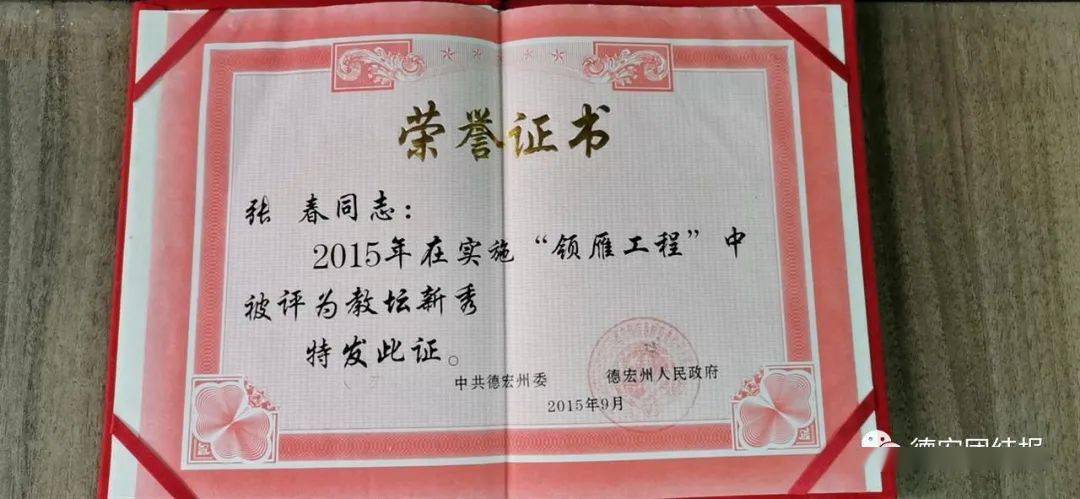 荣誉证书
张 春同志：
2015年在实施“领雁工程”中
被评为教坛新秀
特发此证。
中共德宏州委 德宏州人民政府
2015年9月